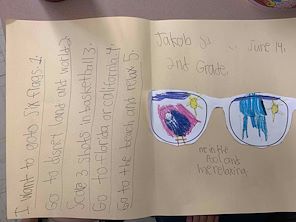 I want to goto Six flags.1.
Go to disney land and world2.
Score 3 shots in basketball3.
Go to florida or california.4.
Go to the beach and relax 5.
Jakob
June 14,
2nd Grade.
me in the
Pool and
me relaxing